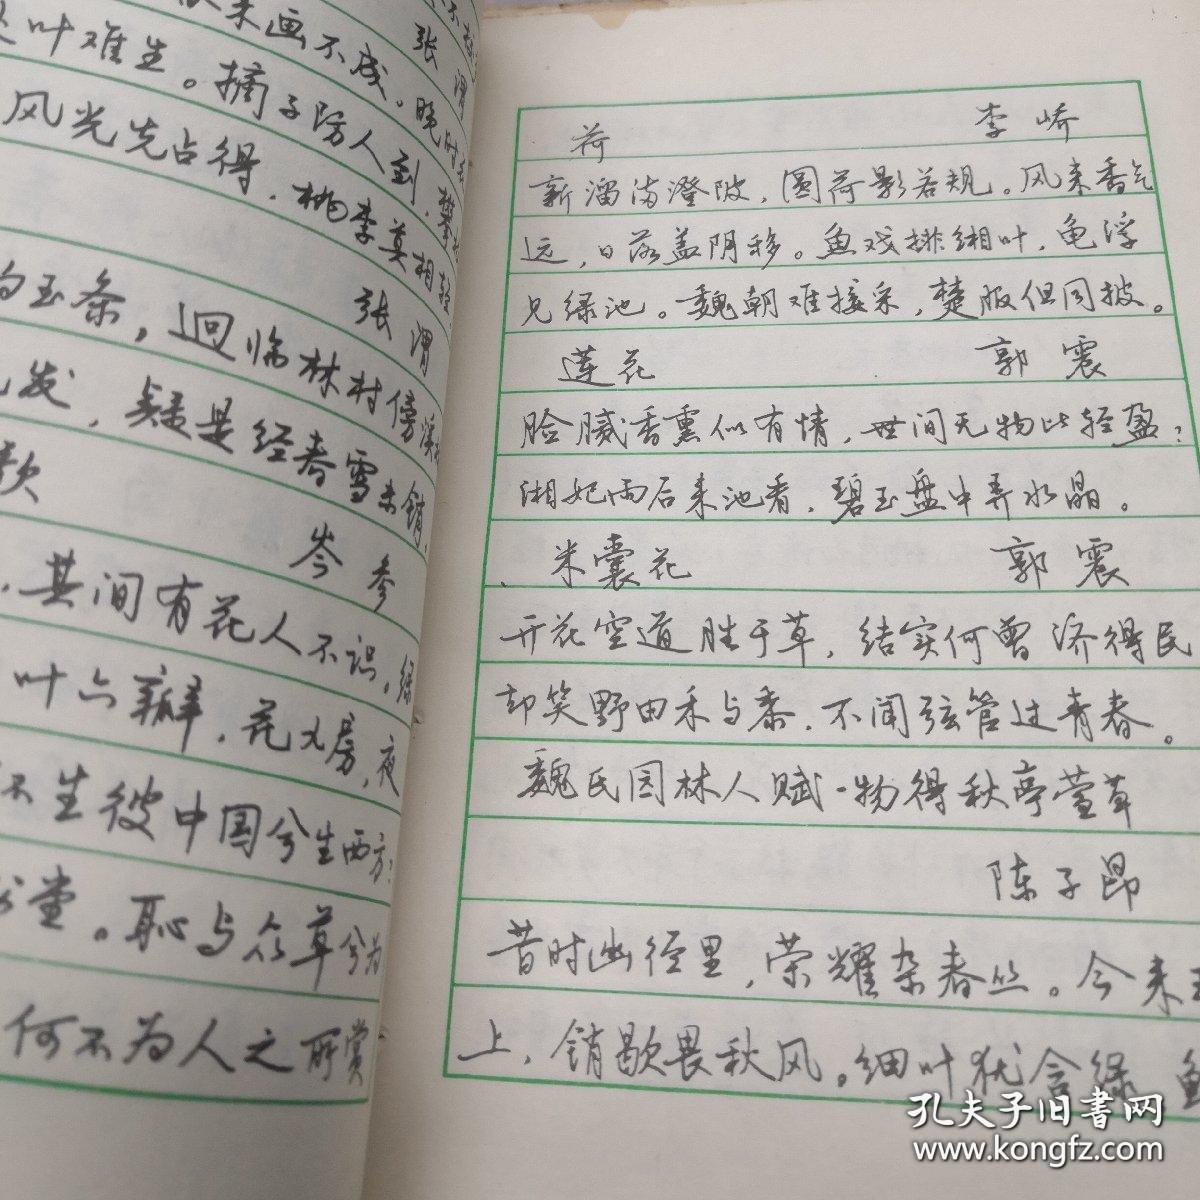 来画不成。晚
叶难生。摘子防人到，攀
风光先占得，桃李莫相轻
张渭
玉条，迥临林村傍溪
发，疑是经春雪未销。
岑参
，其间有花人不识，绿
叶六瓣，花九房，夜
不生彼中国兮生西方？
堂。耻与众草兮为
何不为人之所赏
荷 李峤
新溜满澄陂，圆荷影若规。风来香气
远，日落盖阴移。鱼戏排缃叶，龟浮
见绿池。魏朝难接采，楚服但同披。
莲花 郭震
脸腻香熏似有情，世间无物比轻盈；
湘妃雨后来池看，碧玉盘中弄水晶。
米囊花 郭震
开花空道胜于草，结实何曾济得民
却笑野田禾与黍，不闻弦管过青春。
魏氏园林人赋一物得秋亭萱草
陈子昂
昔时幽径里，荣耀杂春丛。今来
上，销歇畏秋风。细叶犹含绿
孔夫子旧书网
www.kongfz.com